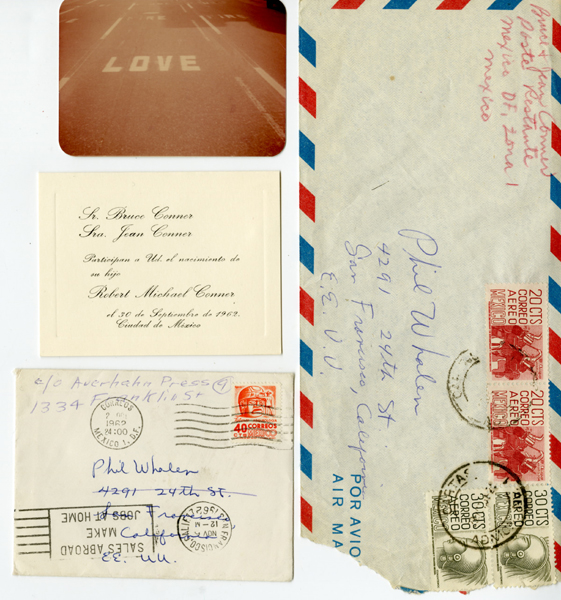 LOVE
Sr. Bruce Conner
Sra. Jean Conner
Participan a Ud. el nacimiento de
su hijo
Robert Michael Conner
el 30 de Septiembre de 1962.
Ciudad de México
c/o Auerhahn Press
1334 Franklin St
CORREOS
1962
24:00
MEXICO 1, D.F.
40 CORREOS
CTS
Phil Whalen
4291 24th St.
San Francisco
California
EE. UU.
SALES ABROAD
MAKE
JOBS AT HOME
SAN FRANCISCO
CALIF.
NOV
12 M
1962
Bruce & Jean Conner
Posta Restante
Mexico DF, Zona 1
Mexico
Phil Whalen
4291 24th St
San Francisco, California
E.E. U.U.
POR AVION
AIR MA
20 CTS
CORREO
AEREO
MEXICO
20 CTS
CORREO
AEREO
MEXICO
30 CTS
CORREO
AEREO
30 CTS
CORREO
AEREO